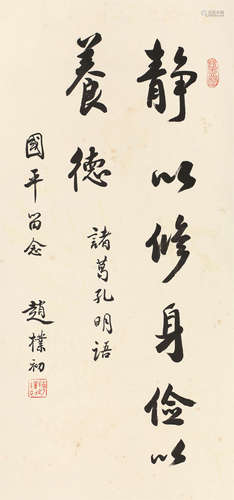 静以修身儉以
養德
諸葛孔明語
國平留念
趙樸初